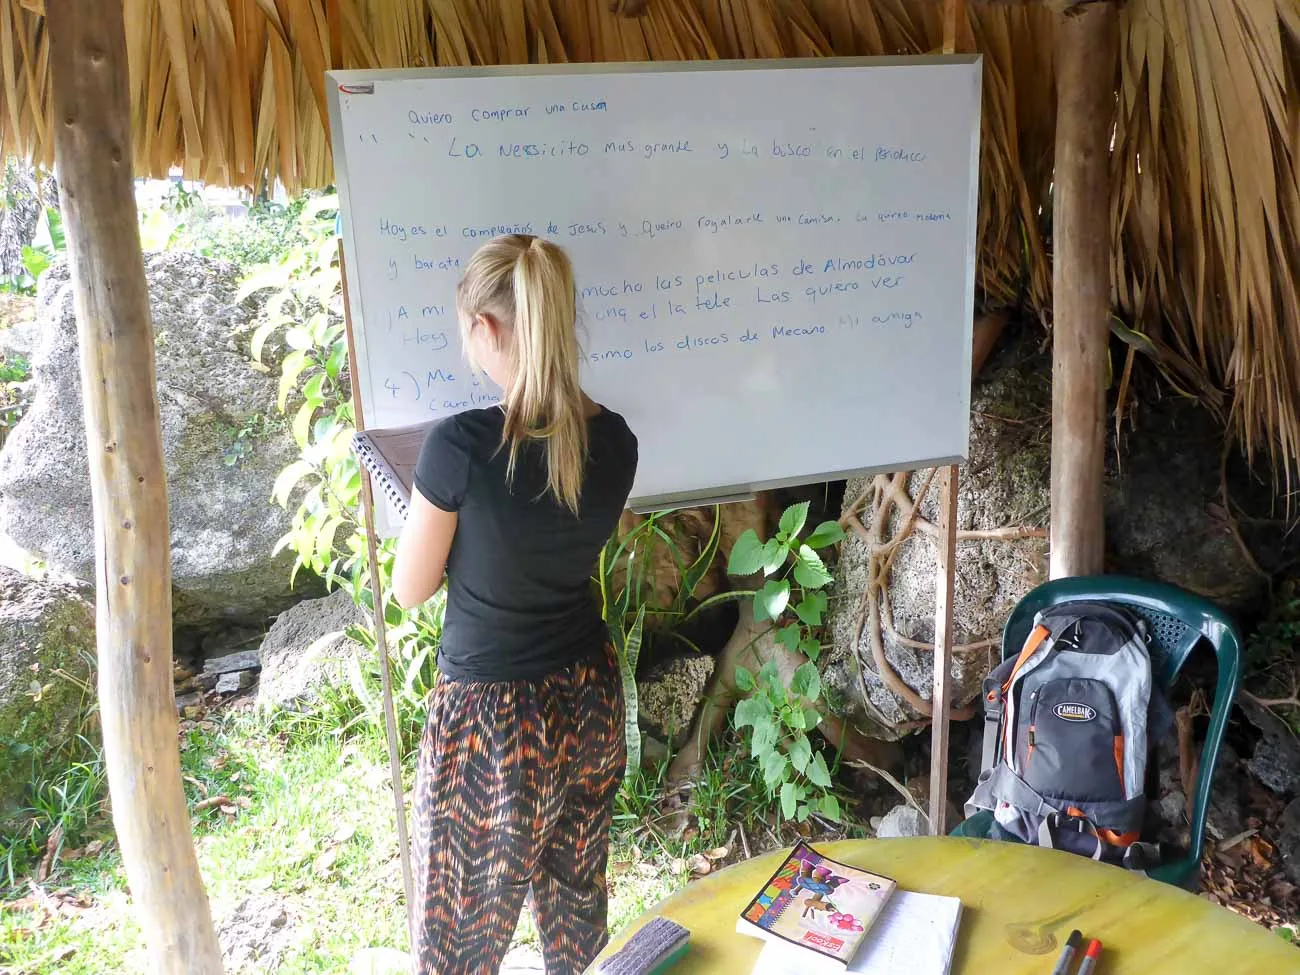 Quiero comprar una casa
La Nessicito mas grande y La busco en el periodico
Hoy es el compleaños de Jesus y Queiro rogalarle una camisa. La quireo moderna
y barata
A mi mucho las peliculas de Almodóvar
Hoy una el la tele Las quiero ver
4) Me simo los discos de Mecano Mi amiga
Carolina
CAMELBAK
Eskool